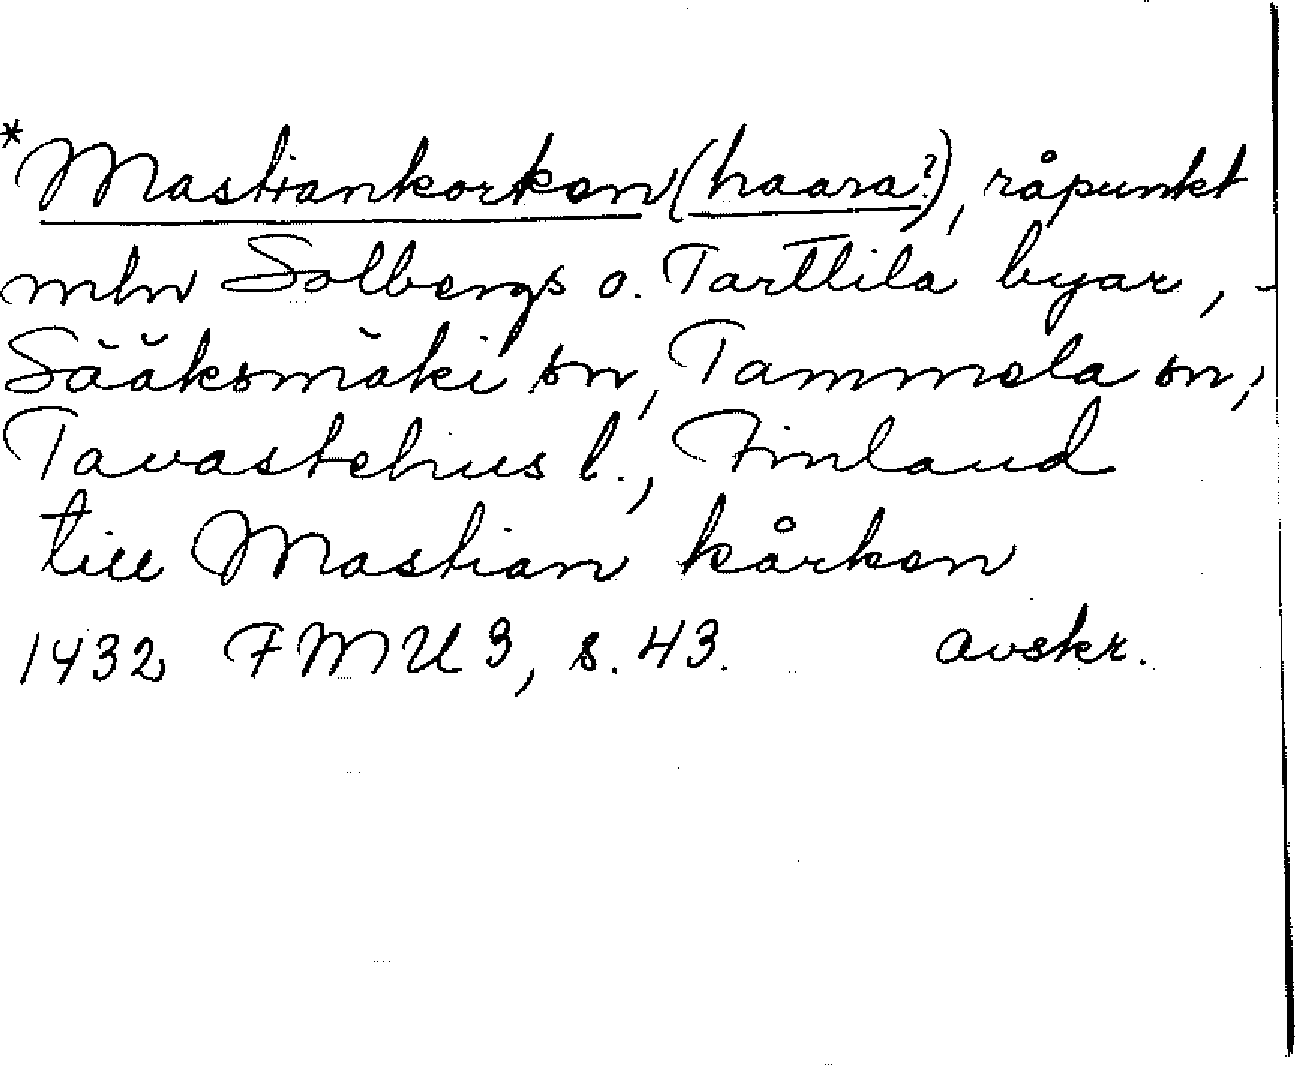 *Mastiankorken (haara?), råpunkt
mln Solbergs o. Tarttila byar,
Sääksmäki sn, Tammela sn,
Tavastehus l., Finland
till Mastian kårken
1432 FMU 3, s. 43. avskr.